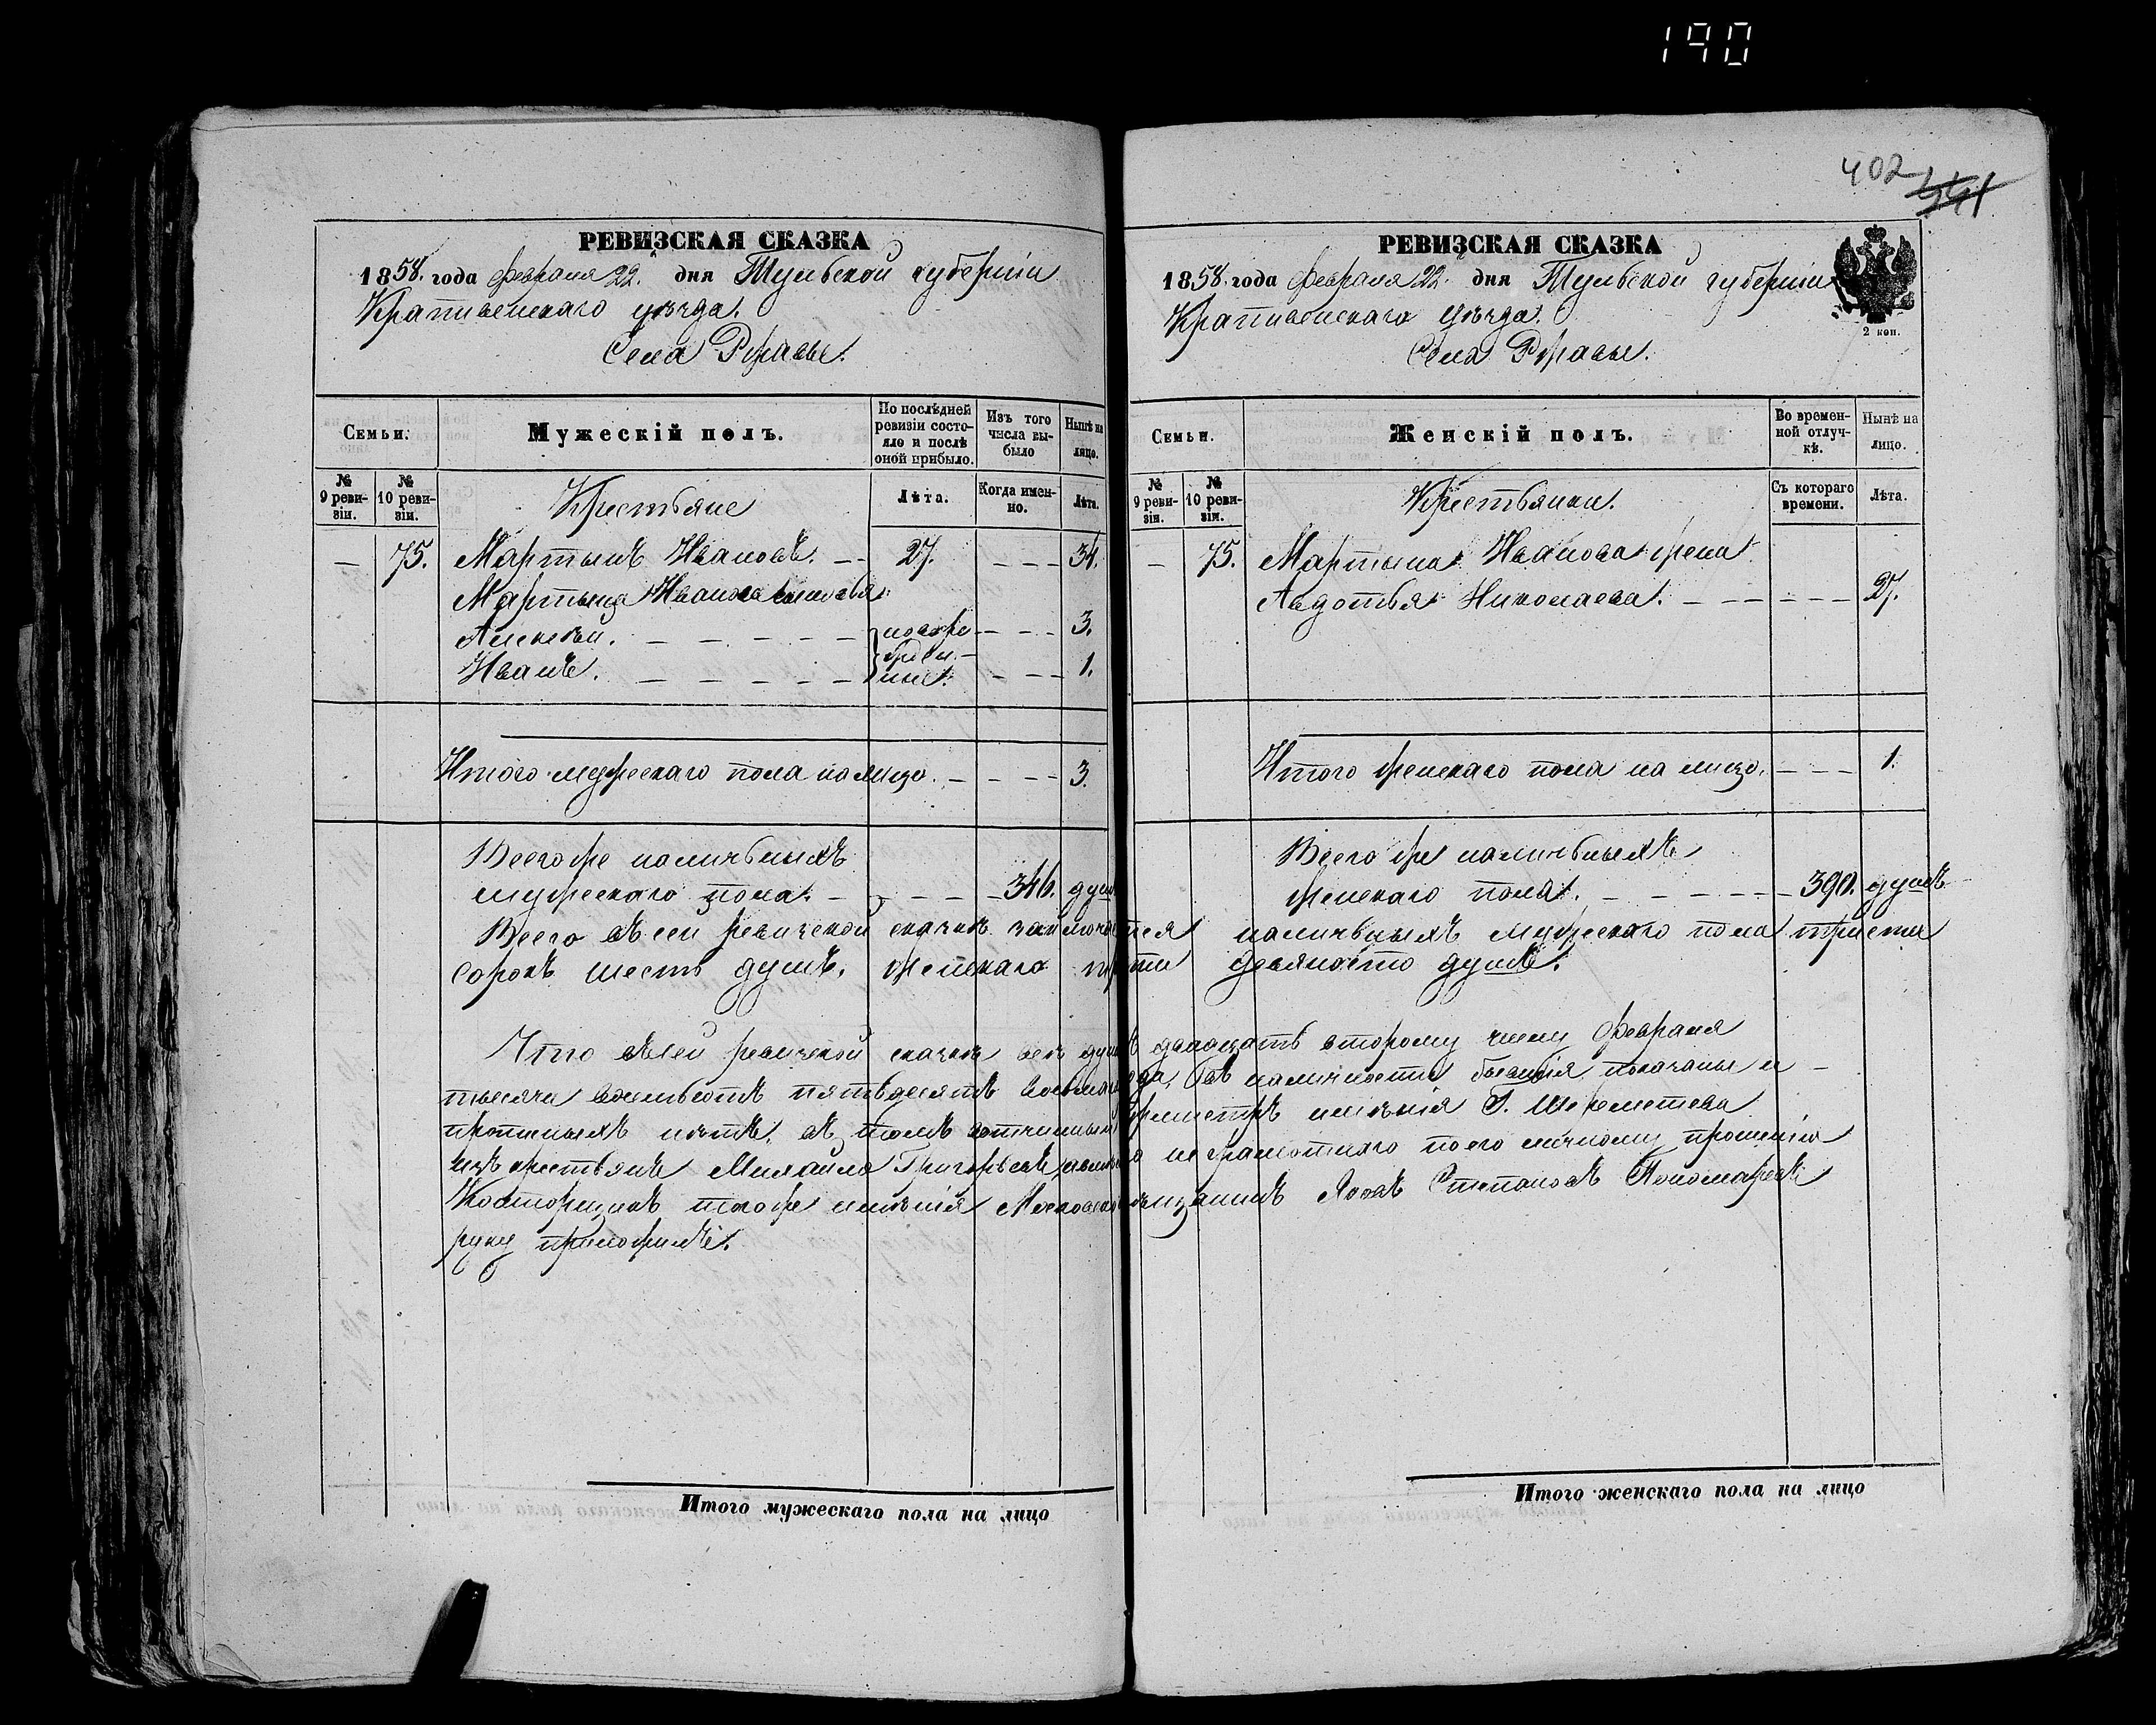 190
402
РЕВИЗСКАЯ СКАЗКА
1858. года Февраля 22. дня Тульской губерніи
Крапивенскаго уѣзда.
Села Ржавы.
Семьи.
Мужескій полъ.
По послѣдней ревизіи состояло и послѣ оной прибыло.
Изъ того числа выбыло
Нынѣ на лицо.
№ 9 ревизіи.
№ 10 ревизіи.
Крестьяне
Лѣта.
Когда именно.
Лѣта.
— 75. Мартынъ Ивановъ. — 27. — — — 34.
Мартына Иванова сыновья:
Алексѣй. — — — — — — — — 3.
Иванъ. — — — — — — — — 1.
Итого мужескаго пола на лицо. — — — — 3.
Всего же наличныхъ
мужескаго пола. — — — — 346. душ
РЕВИЗСКАЯ СКАЗКА
1858. года Февраля 22. дня Тульской губерніи
Крапивенскаго уѣзда.
Села Ржавы.
2 коп.
Семьи.
Женскій полъ.
Во временной отлучкѣ.
Нынѣ на лицо.
№ 9 ревизіи.
№ 10 ревизіи.
Крестьянки.
Съ котораго времени.
Лѣта.
— 75. Мартына Иванова жена
Авдотья Николаева. — — — — — 27.
Итого женскаго пола на лицо. — — — 1.
Всего же наличныхъ
женскаго пола. — — — — — 390. душъ
Всего въ сей ревизской сказкѣ заключается наличныхъ мужескаго пола триста
сорокъ шесть душъ, женскаго триста девяносто душъ.
Что въ сей ревизской сказкѣ всѣ душ двадцать второму числу Февраля
тысяча восемьсотъ пятьдесятъ года, въ наличности бывшія показаны и —
нѣтъ, въ томъ вотчинный имѣнія Г. Шереметева
изъ крестьянъ Михайла Григорьевъ неграмотнаго по его личному прошенію
тогоже имѣнія Яковъ Степановъ Пономаревъ
руку приложилъ.
Итого мужескаго пола на лицо
Итого женскаго пола на лицо